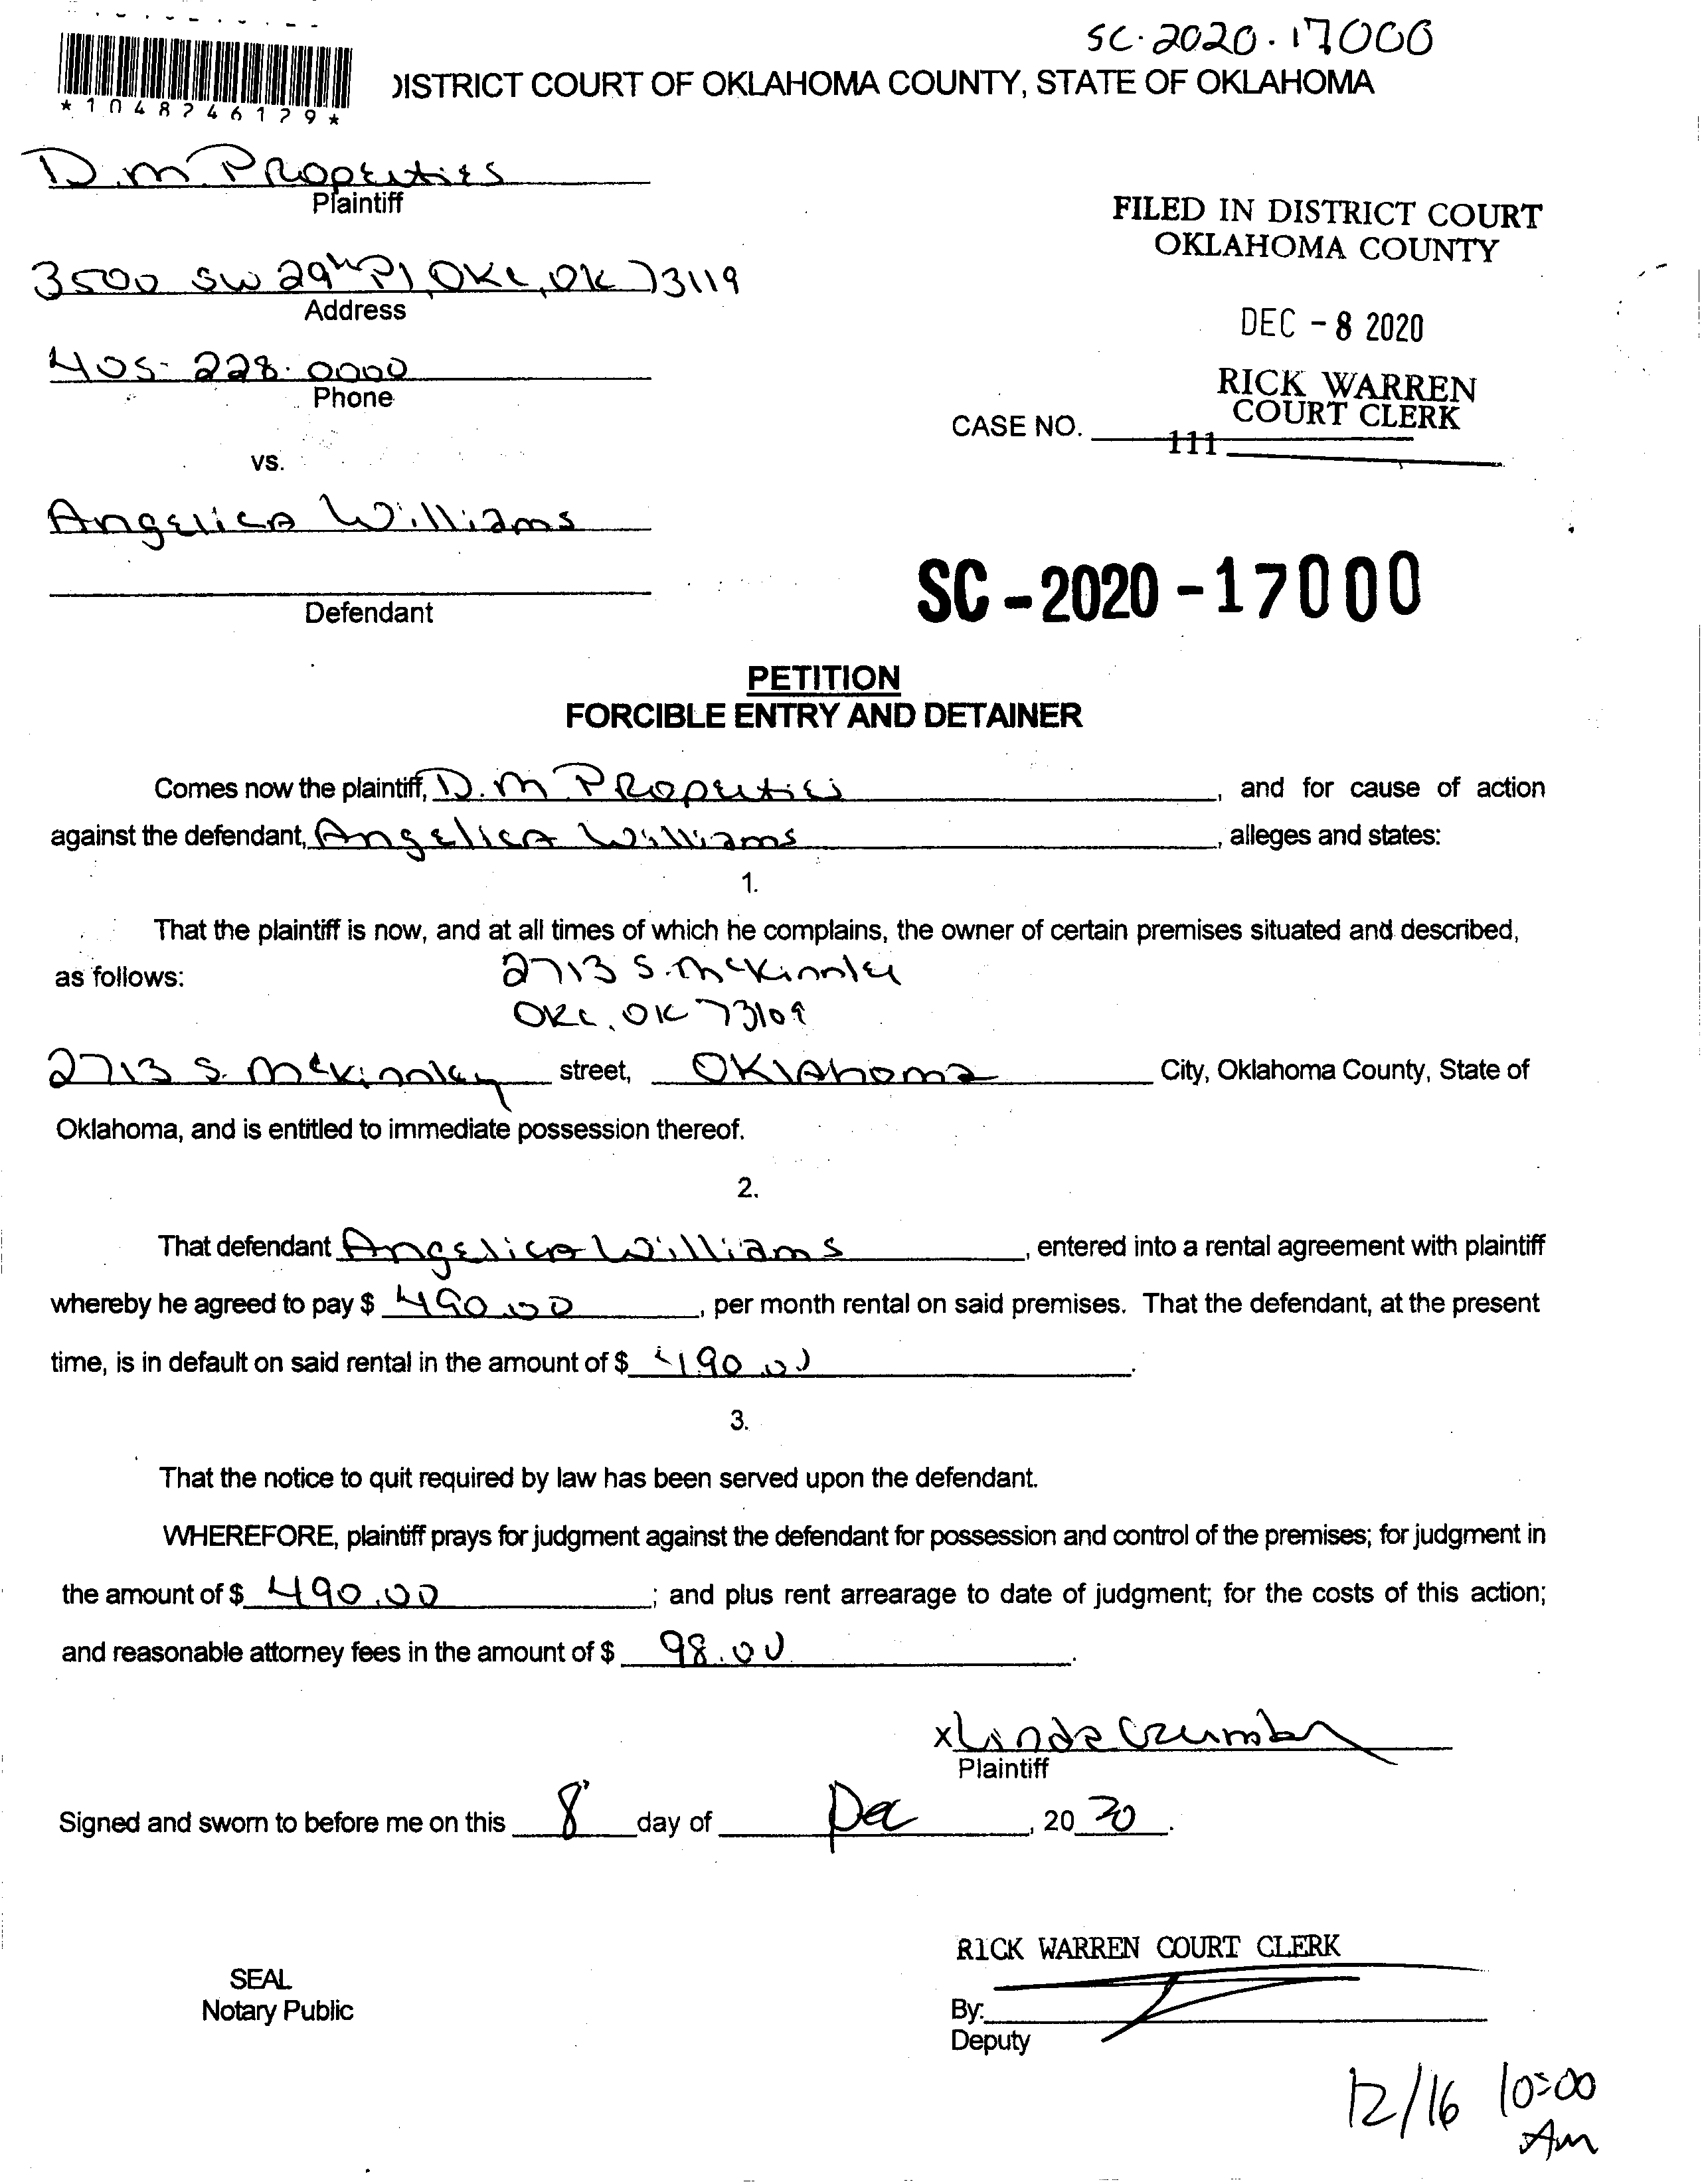 SC-2020-17000
*1048746179*
DISTRICT COURT OF OKLAHOMA COUNTY, STATE OF OKLAHOMA
D.M. Properties
Plaintiff
3500 SW 29th Pl, OKC, OK 73119
Address
405-228-0000
Phone
FILED IN DISTRICT COURT
OKLAHOMA COUNTY
DEC - 8 2020
RICK WARREN
COURT CLERK
CASE NO.
111
vs.
Angelica Williams
Defendant
SC - 2020 - 17000
PETITION
FORCIBLE ENTRY AND DETAINER
Comes now the plaintiff, D.M Properties, and for cause of action
against the defendant, Angelica Williams, alleges and states:
1.
That the plaintiff is now, and at all times of which he complains, the owner of certain premises situated and described,
as follows: 2713 S. McKinnley
OKC, OK 73109
2713 S. McKinnley street, Oklahoma City, Oklahoma County, State of
Oklahoma, and is entitled to immediate possession thereof.
2.
That defendant Angelica Williams, entered into a rental agreement with plaintiff
whereby he agreed to pay $ 490.00, per month rental on said premises. That the defendant, at the present
time, is in default on said rental in the amount of $ 490.00.
3.
That the notice to quit required by law has been served upon the defendant.
WHEREFORE, plaintiff prays for judgment against the defendant for possession and control of the premises; for judgment in
the amount of $ 490.00; and plus rent arrearage to date of judgment; for the costs of this action;
and reasonable attorney fees in the amount of $ 98.00.
x Linda Crumbly
Plaintiff
Signed and sworn to before me on this 8 day of Dec, 20 20.
RICK WARREN COURT CLERK
SEAL
Notary Public
By:
Deputy
12/16 10:00
Am